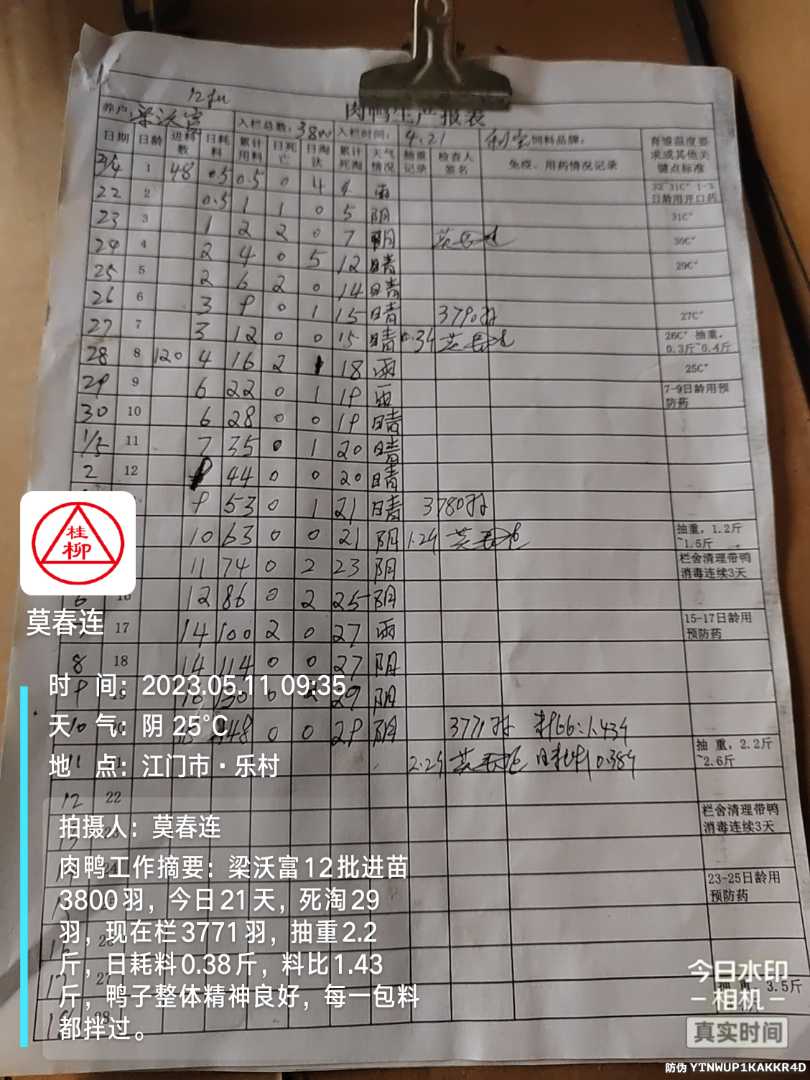 12批
肉鸭生产报表
养户: 梁沃富 入栏总数: 3800 入栏时间: 4.21 饲料品牌:
日期 日龄 进料数 日耗料 累计用料 日死亡 日淘汰 累计死淘 天气情况 抽重记录 检查人签名 免疫、用药情况记录 育雏温度要求或其他关键点标准
21/4 1 48 0.5 0.5 0 4 4 雨 32~31C° 1-3日龄用开口药
22 2 0.5 1 1 0 5 阴 31C°
23 3 1 2 2 0 7 阴 30C°
24 4 2 4 0 5 12 晴 29C°
25 5 2 6 2 0 14 晴
26 6 3 9 0 1 15 晴 3790羽 27C°
27 7 3 12 0 0 15 晴 0.34 26C° 抽重,0.3斤~0.4斤
28 8 120 4 16 2 1 18 雨 25C°
29 9 6 22 0 1 19 雨 7-9日龄用预防药
30 10 6 28 0 0 19 晴
1/5 11 7 35 0 1 20 晴
2 12 9 44 0 0 20 晴
9 53 0 1 21 晴 3780羽
10 63 0 0 21 阴 1.24 抽重,1.2斤~1.5斤
11 74 0 2 23 阴 栏舍清理带鸭消毒连续3天
12 86 0 2 25 阴
17 14 100 2 0 27 雨 15-17日龄用预防药
8 18 14 114 0 0 27 阴
9 19 16 130 0 2 29 阴
10 20 148 0 0 29 阴 3771羽 料比:1.43斤
11 21 2.2斤 日耗料0.38斤 抽重,2.2斤~2.6斤
12 22 栏舍清理带鸭消毒连续3天
23-25日龄用预防药
3.5斤
桂柳
莫春连
时 间: 2023.05.11 09:35
天 气: 阴 25°C
地 点: 江门市·乐村
拍摄人: 莫春连
肉鸭工作摘要: 梁沃富12批进苗
3800羽,今日21天,死淘29
羽,现在栏3771羽,抽重2.2
斤,日耗料0.38斤,料比1.43
斤,鸭子整体精神良好,每一包料
都拌过。
今日水印
-相机-
真实时间
防伪 YTNWUP1KAKKR4D